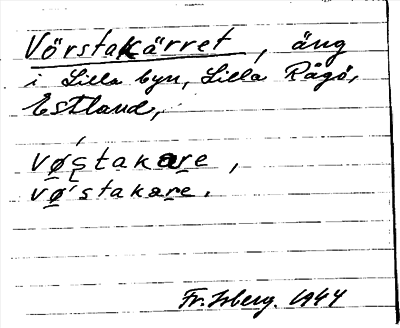 Vörstakärret, äng
i Lilla byn, Lilla Rågö,
Estland,
vǿstakare,
vǿstakare.
Fr. Isberg. 1944